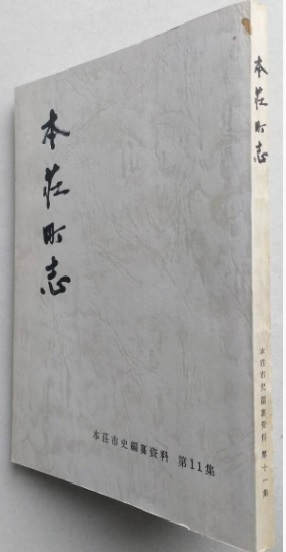 本荘町志
本荘市史編纂資料 第11集
本荘町志
本荘市史編纂資料 第十一集